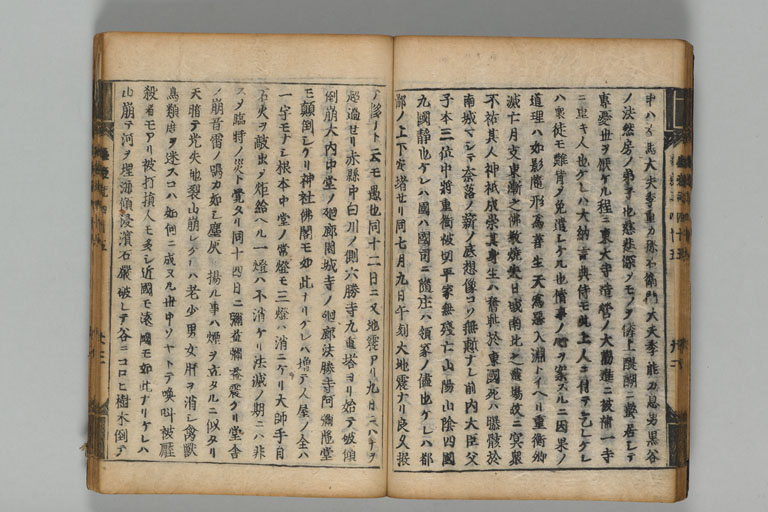 大夫季重カ孫右衛門大夫季能カ息男黒谷
ノ法然房ノ弟子也慈悲深キモノヽ偏上醍醐ニ蟄居シテ
専憂世ヲ厭ケル程ニ東大寺造営ノ大勧進ニ被補一寺
ニ重キ人也ケレハ大納言典侍モ此上人ニ付テ乞レケレ
ハ衆徒モ難背ク免遣シケル也情事ノ心ヲ案スルニ因果ノ
道理ハ如影随形為善生天為悪入淵トイヘリ重衡卿
滅亡月支東漸之佛教焼失日域南北之霊場故ニ冥衆
不祐其人神祇成祟其身生ハ奮恥於東國死ハ曝骸於
南城マシテ奈落ノ薪ノ底想像コソ無慙ナレ前内大臣父
子本三位中将重衡被切平家無残亡山陽山陰四國
九國静也ケレハ國ハ國司ニ随庄ハ領家ノ儘也ケレハ都
鄙ノ上下安堵セリ同七月九日午刻大地震ナリ良久振
ト云モ愚也同十二日ニ又地震アリ九日ニハ
超過セリ赤縣中白川ノ側六勝寺九重塔ヨリ始テ破傾
倒崩大内中堂ノ廻廊園城寺ノ廻廊法勝寺阿彌陀堂
モ顛倒シケリ神社佛閣モ如此ナリケレハ増テ人屋ノ全ハ
一宇モナシ根本中堂ノ常燈モ三燈ハ消ニケリ大師手自
石火ヲ敲出シ挑給ヘル一燈ハ不消ケリ法滅ノ期ニハ非
ス只臨時ノ災ト覺タリ同十四日ニ彌益震ケリ堂舎
ノ崩音雷ノ鳴カ如シ塵灰ノ揚ル事ハ煙ヲ立タルニ似タリ
天暗テ光失地裂山崩レケレハ老少男女肝ヲ消シ禽獣
鳥類度ヲ迷スコハ如何ニ成ヌル世中ソヤトテ喚叫被壓
殺者モアリ被打損人モ多シ近國モ遠國モ如此ナリケレハ
山崩テ河ヲ埋海傾浸濱石巖破レテ谷ニコロヒ樹木倒テ